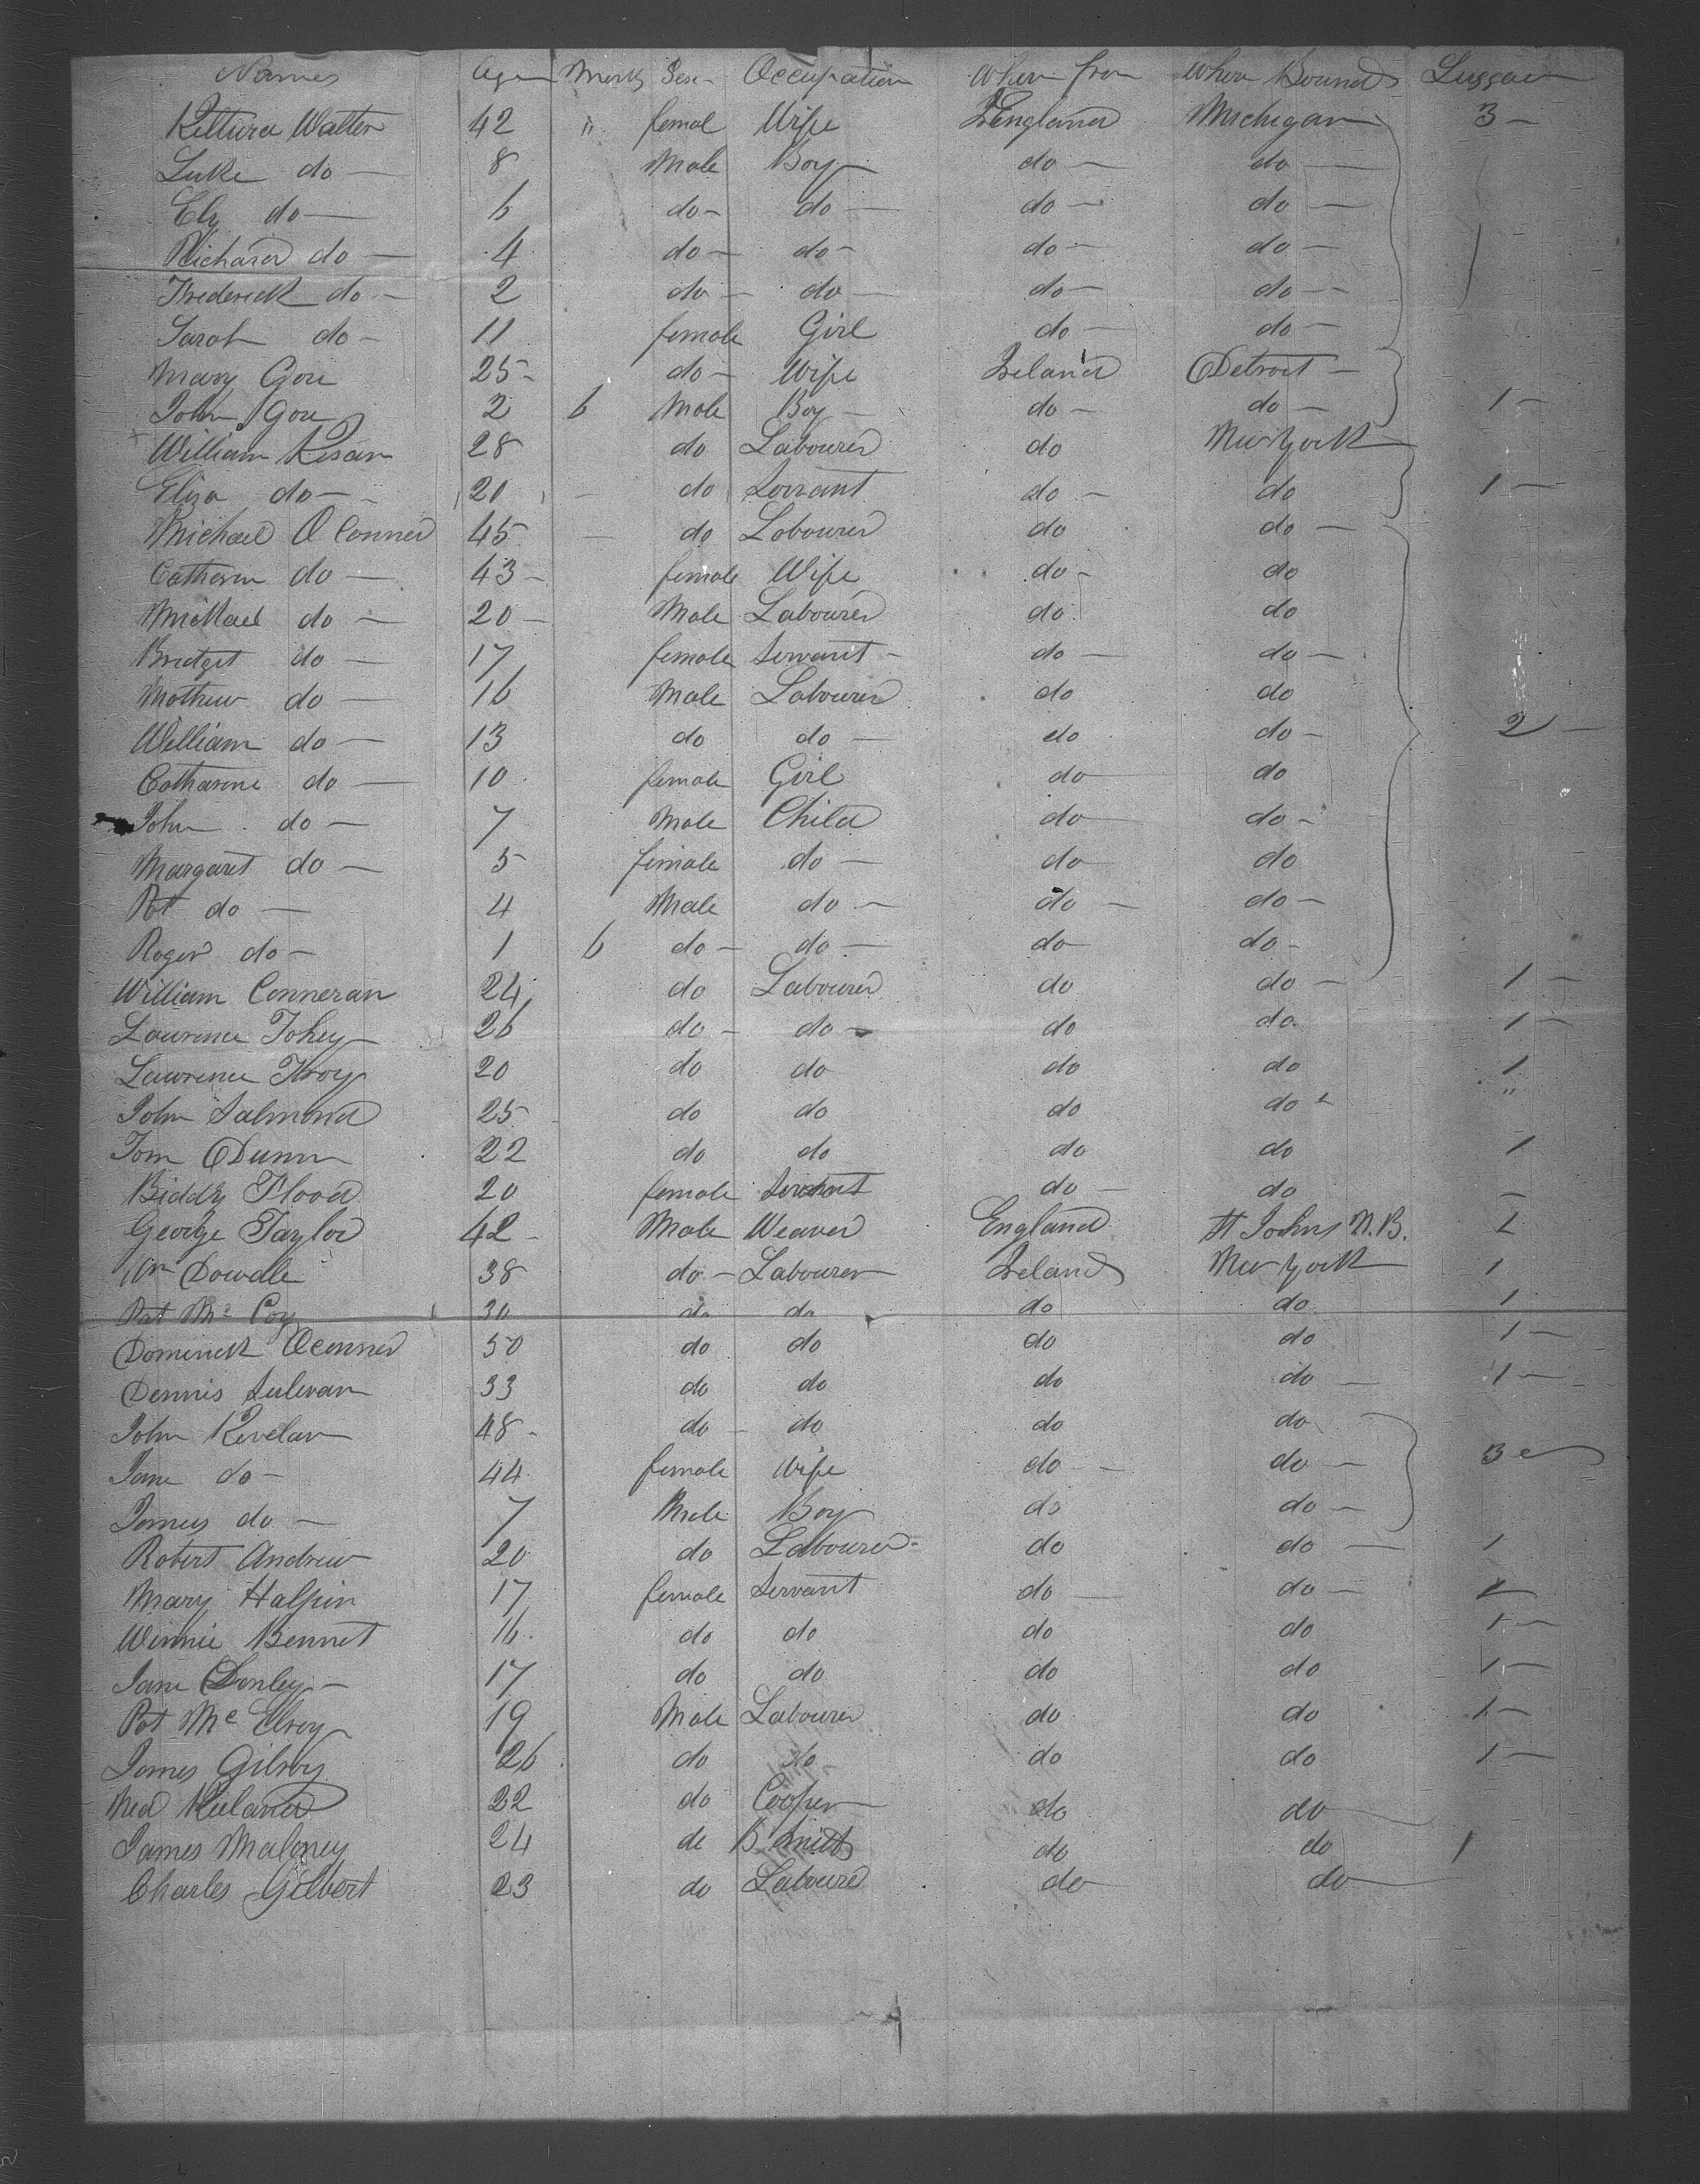 Names Age Months Sex Occupation Where from Where Bound Luggage
Kettura Walter 42 " femal Wife England Michigan 3 -
Luke do - 8 Male Boy do - do -
Ely do - 6 do - do - do - do -
Richard do - 4 do - do - do - do -
Frederick do - 2 do - do - do - do -
Sarah do - 11 female Girl do - do -
Mary Gore 25 - do - Wife Ireland Detroit -
John Gore 2 6 Male Boy - do - do - 1 -
William Kesan 28 do Labourer do New York
Eliza do - 20 - do Servant do - do 1 -
Michael O Conner 45 - do Labourer do do -
Catheren do - 43 - female Wife do - do
Michael do - 20 - Male Labourer do do
Bridget do - 17 female Servant - do - do -
Mathew do - 16 Male Labourer do do
William do - 13 do do - do do - 2 -
Catharine do - 10 female Girl do do
John do - 7 Male Child do do -
Margaret do - 5 female do - do do
Pat do - 4 Male do - do - do -
Roger do - 1 6 do - do - do do -
William Conneran 24 do Labourer do do - 1 -
Lawrence Tohey 26 do - do - do do 1 -
Lawrence Troy 20 do do do do 1
John Salmond 25 do do do do "
Tom Dunn 22 do do do do 1
Biddy Flood 20 female Servant do - do -
George Taylor 42 - Male Weaver England St Johns N.B. 1
Wm Dowdle 38 do - Labourer Ireland New York 1
Pat Mc Coy 30 do do do do 1
Dominick Oconner 50 do do do do 1 -
Dennis Sulevan 33 do do do do - 1 -
John Kevelan 48 - do - do do do
Jane do - 44 female Wife do - do - 3
James do - 7 Male Boy do do -
Robert Andrew 20 do Labourer do do - 1
Mary Halpin 17 female Servant do - do - 1
Winnie Bennet 16 do do do do 1 -
Jane Donley - 17 do do do do 1 -
Pat Mc Elroy 19 Male Labourer do do 1 -
James Gilroy 26 do do do do 1 -
Ned 22 do Cooper do do
James Maloney 24 do B Smith do do 1
Charles Gilbert 23 do Labourer do do